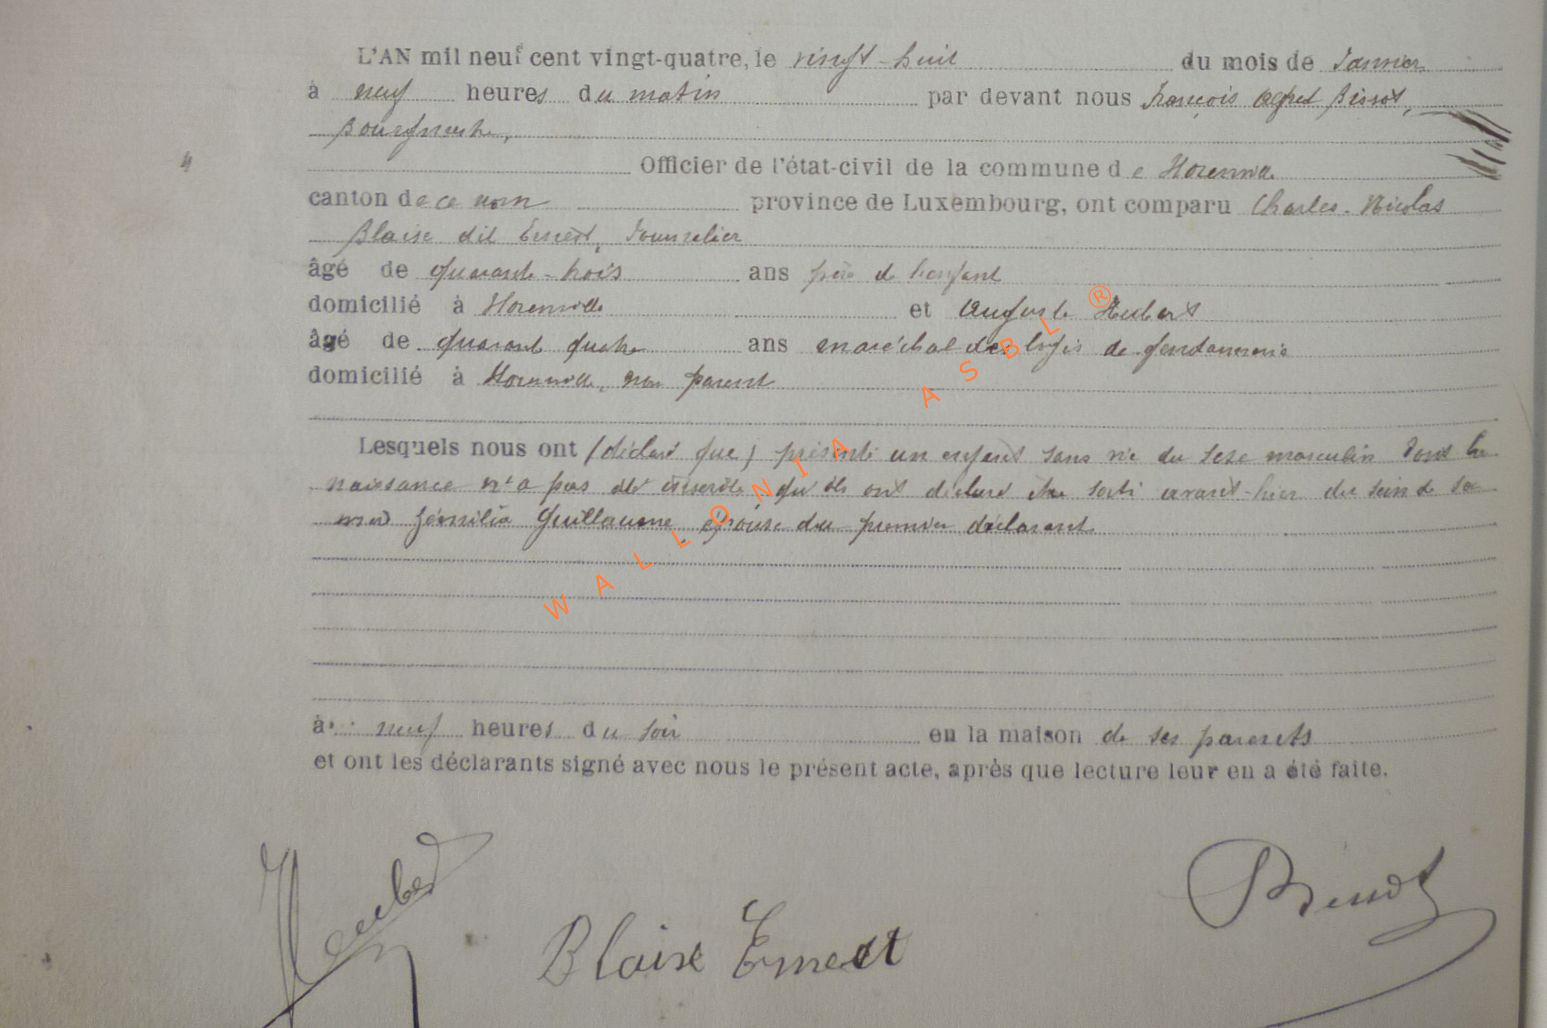 L'AN mil neuf cent vingt-quatre, le vingt-huit du mois de Janvier
à neuf heures du matin par devant nous François Alfred Bissot,
Bourgmestre,
Officier de l'état-civil de la commune de Florenville
canton de ce nom province de Luxembourg, ont comparu Charles-Nicolas
Blaise dit Ernest, Journalier
âgé de quarante-trois ans père de l'enfant
domicilié à Florenville et Auguste Hubert
âgé de quarante quatre ans maréchal des logis de gendarmerie
domicilié à Florenville, non parent
Lesquels nous ont (déclaré que) présenté un enfant sans vie du sexe masculin dont la
naissance n'a pas été inscrite qu'ils ont déclaré être sorti avant-hier du sein de sa
mère Guillaume, épouse du premier déclarant
à neuf heures du soir en la maison de ses parents
et ont les déclarants signé avec nous le présent acte, après que lecture leur en a été faite.
Hubert
Blaise Ernest
Bissot
WALLONIA ASBL ®